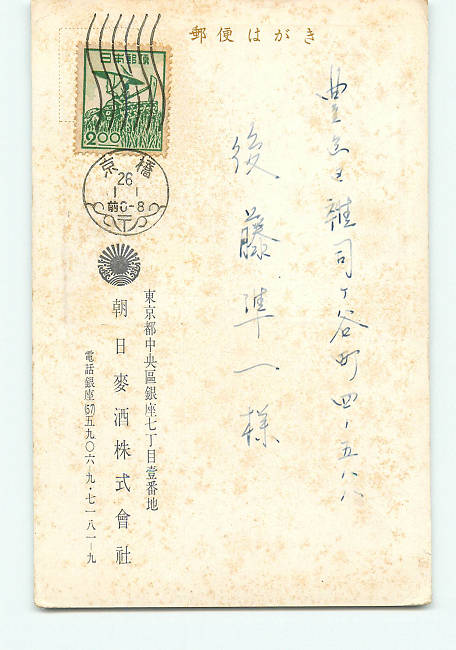 郵便はがき
日本郵便
2.00
京橋
26
1 1
前0-8
豊島区雑司ヶ谷町四ノ五八八
後藤準一様
東京都中央區銀座七丁目壹番地
朝日麥酒株式會社
電話銀座(57)五九〇六-九・七一八一-九